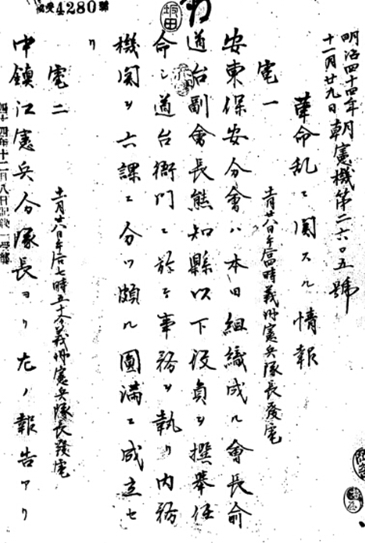 明治四十四年
十一月廿九日 朝憲機第二六〇五號
革命乱ニ関スル情報
電一 十一月廿八日午后 時義州憲兵隊長發電
安東保安分會ハ本日組織成ル會長俞
道台副會長熊知縣以下役員ヲ撰擧任
命シ道台衙門ニ於テ事務ヲ執リ内務
機関ヲ六課ニ分ツ頗ル圓満ニ成立セ
リ
電二 十一月廿八日午后七時五十分義州憲兵隊長發電
中鎮江憲兵分隊長ヨリ左ノ報告アリ
4280號